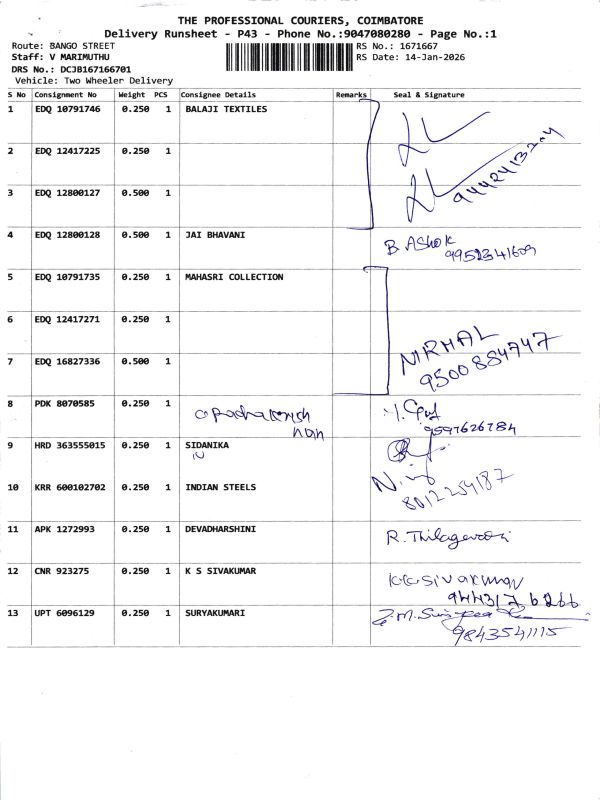 THE PROFESSIONAL COURIERS, COIMBATORE
Delivery Runsheet - P43 - Phone No.:9047080280 - Page No.:1
Route: BANGO STREET RS No.: 1671667
Staff: V MARIMUTHU RS Date: 14-Jan-2026
DRS No.: DCJB167166701
Vehicle: Two Wheeler Delivery
S No Consignment No Weight PCS Consignee Details Remarks Seal & Signature
1 EDQ 10791746 0.250 1 BALAJI TEXTILES
2 EDQ 12417225 0.250 1
3 EDQ 12800127 0.500 1
4 EDQ 12800128 0.500 1 JAI BHAVANI B ASHOK
5 EDQ 10791735 0.250 1 MAHASRI COLLECTION
6 EDQ 12417271 0.250 1
NIRMAL
9500884747
7 EDQ 16827336 0.500 1
8 PDK 8070585 0.250 1
9597626784
9 HRD 363555015 0.250 1 SIDANIKA
10 KRR 600102702 0.250 1 INDIAN STEELS
8012254187
11 APK 1272993 0.250 1 DEVADHARSHINI
12 CNR 923275 0.250 1 K S SIVAKUMAR
13 UPT 6096129 0.250 1 SURYAKUMARI
9843541115